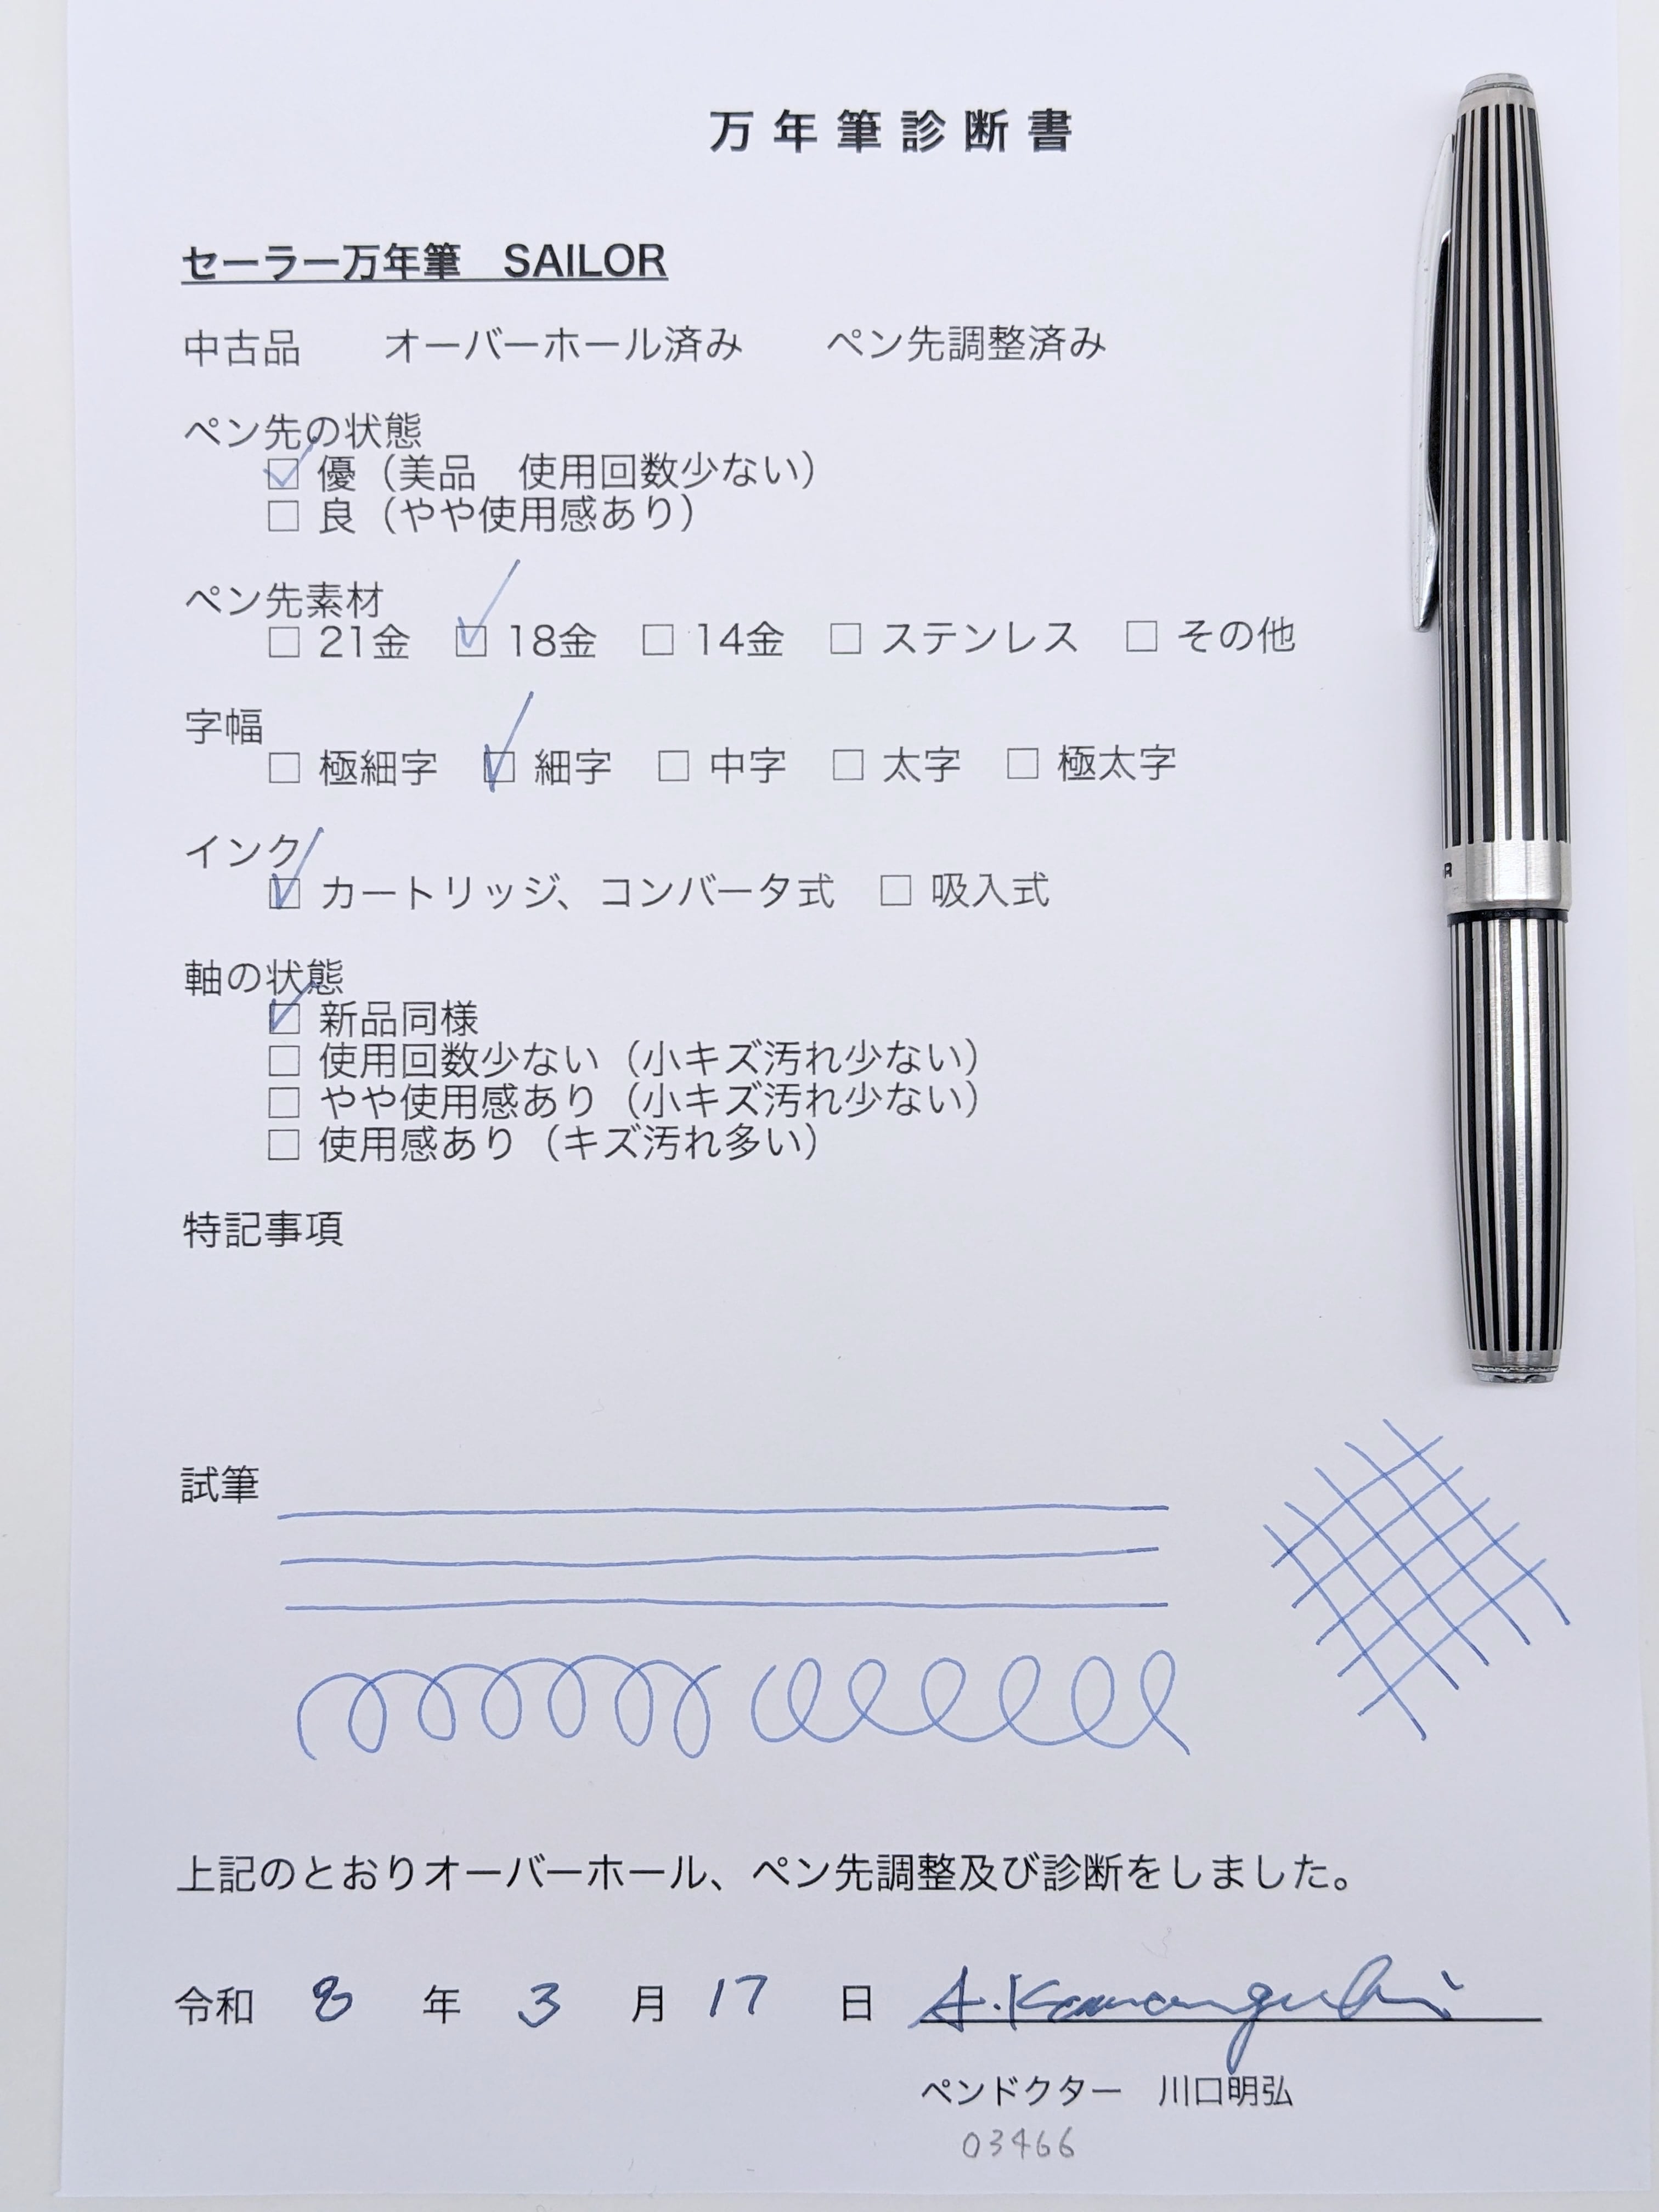 万年筆診断書
セーラー万年筆　SAILOR
中古品　　オーバーホール済み　　ペン先調整済み
ペン先の状態
☑ 優（美品　使用回数少ない）
☐ 良（やや使用感あり）
ペン先素材
☐ 21金　☑ 18金　☐ 14金　☐ ステンレス　☐ その他
字幅
☐ 極細字　☑ 細字　☐ 中字　☐ 太字　☐ 極太字
インク
☑ カートリッジ、コンバータ式　☐ 吸入式
軸の状態
☑ 新品同様
☐ 使用回数少ない（小キズ汚れ少ない）
☐ やや使用感あり（小キズ汚れ少ない）
☐ 使用感あり（キズ汚れ多い）
特記事項
試筆
上記のとおりオーバーホール、ペン先調整及び診断をしました。
令和 8 年 3 月 17 日 A.Kawaguchi
ペンドクター　川口明弘
03466